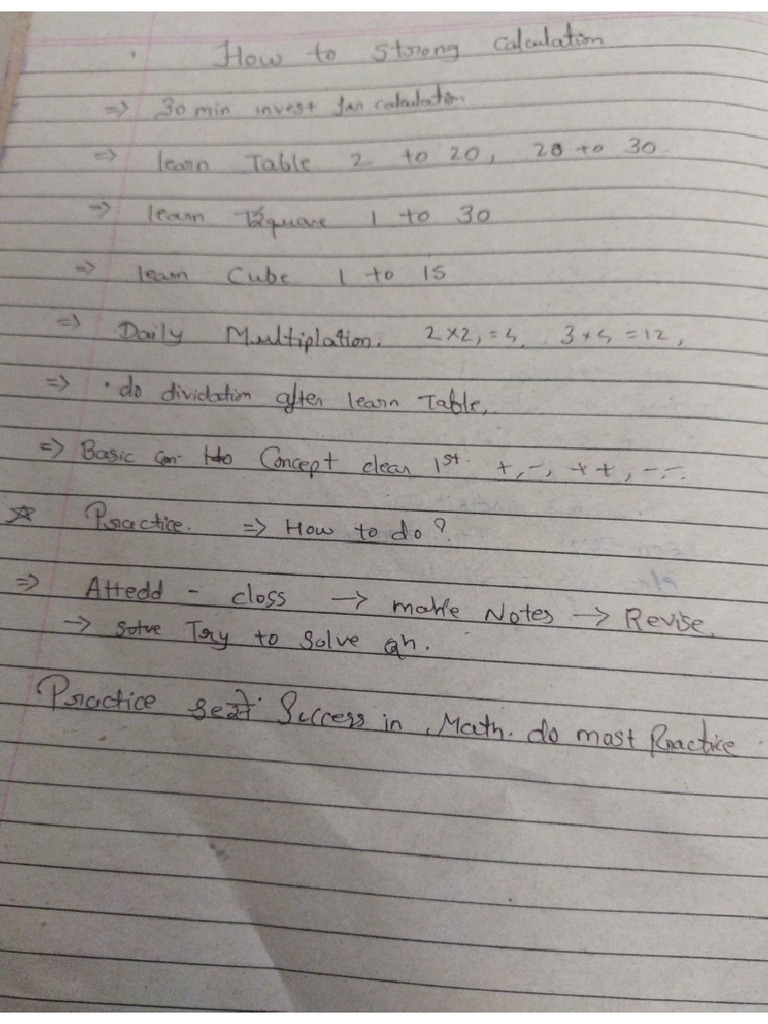 How to strong calculation
=> 30 min invest for calculation
=> learn Table 2 to 20, 20 to 30.
=> learn Square 1 to 30
=> learn Cube 1 to 15
=> Daily Multiplation. 2×2,=4, 3×4=12,
=> • do dividation after learn Table,
=> Basic Concept clear 1st. +,-, ++, --.
☆ Practice. => How to do?
=> Attedd - closs -> make Notes -> Revise.
-> Try to solve qn.
Practice करो Success in Math. do most Practice